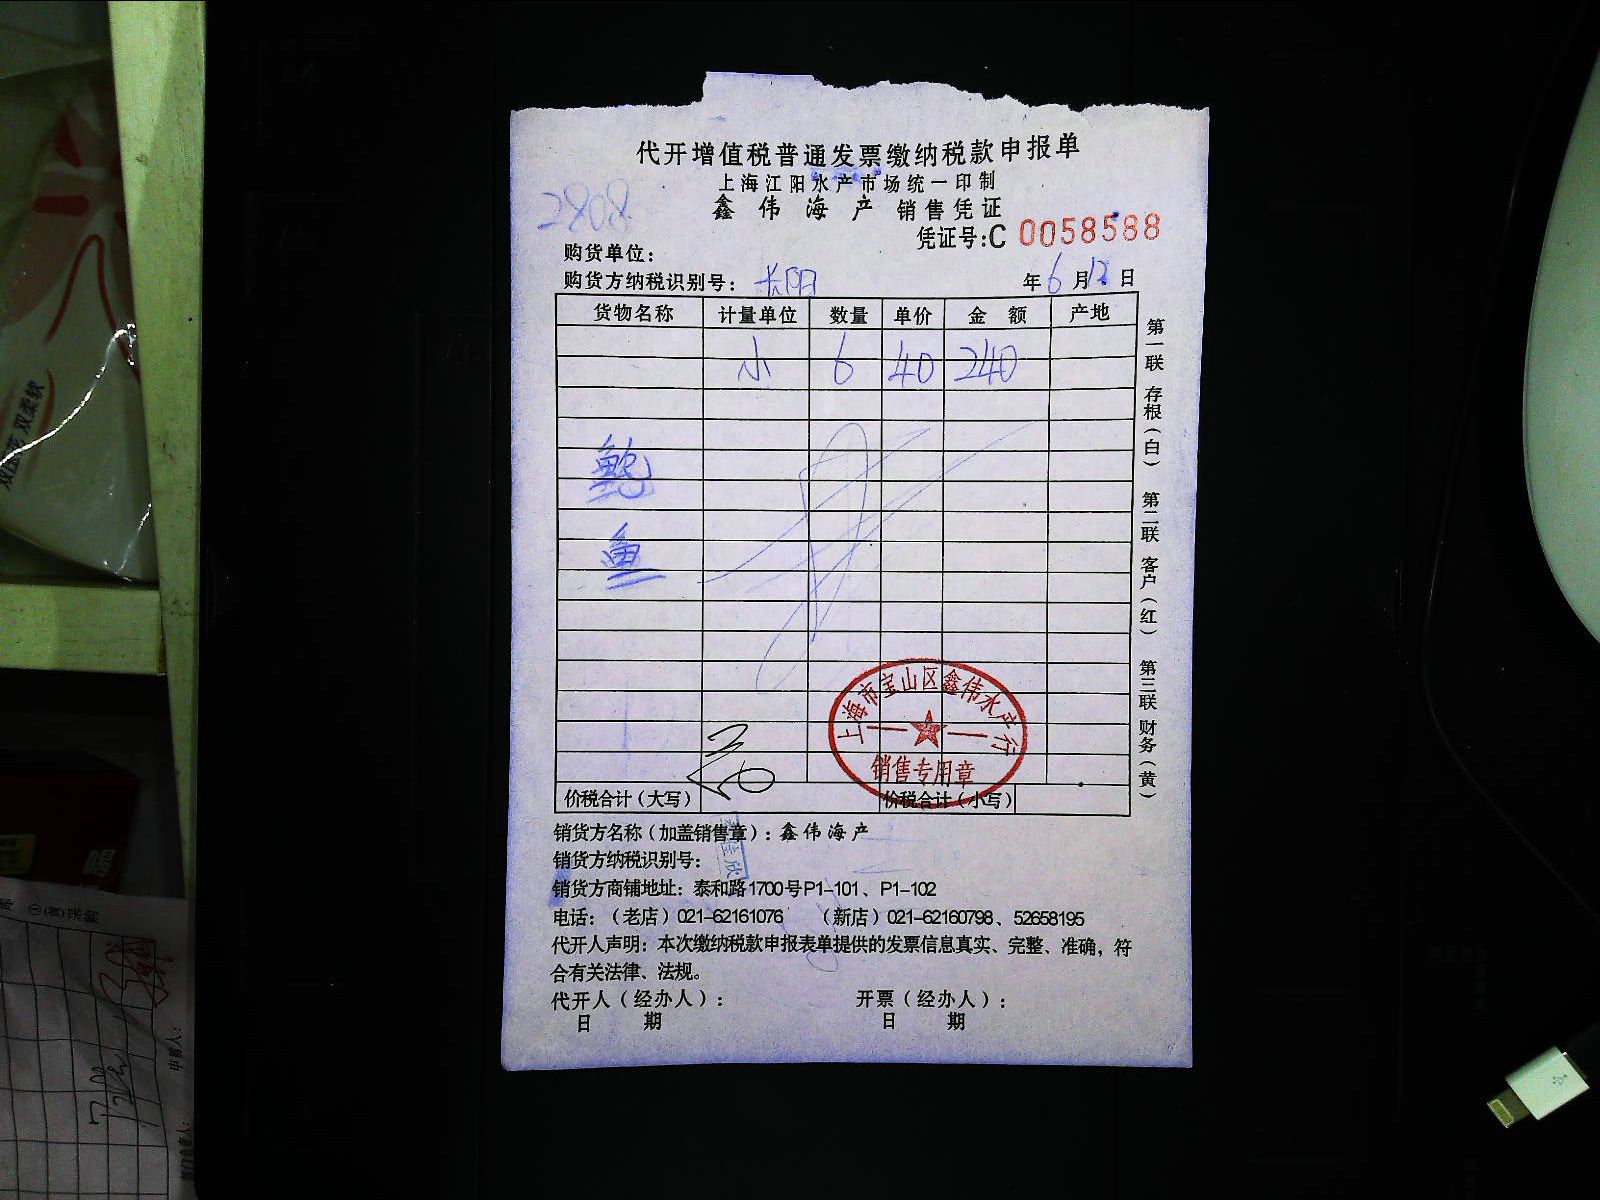 代开增值税普通发票缴纳税款申报单
上海江阳水产市场统一印制
2808
鑫伟海产 销售凭证
凭证号:C 0058588
购货单位:
购货方纳税识别号: 长阳 年6月12日
货物名称 计量单位 数量 单价 金额 产地
小 6 40 240
鲍
鱼
上海市宝山区鑫伟水产行
销售专用章
价税合计(大写) 价税合计(小写)
销货方名称(加盖销售章): 鑫伟海产
销货方纳税识别号:
销货方商铺地址: 泰和路1700号P1-101、P1-102
电话:(老店)021-62161076 (新店)021-62160798、52658195
代开人声明: 本次缴纳税款申报表单提供的发票信息真实、完整、准确,符
合有关法律、法规。
代开人(经办人): 开票(经办人):
日期 日期
第一联 存根(白) 第二联 客户(红) 第三联 财务(黄)
双柔软
申购人: